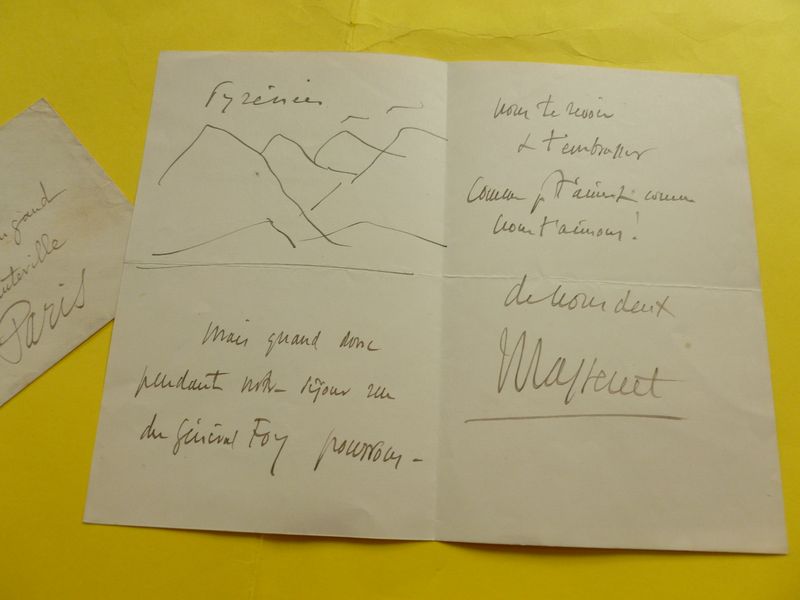 grand
uteville
Paris
Pyrénées
Mais quand donc
pendant notre séjour rue
du Général Foy pourrons-
nous te revoir
& t'embrasser
comme je t'aime & comme
nous t'aimons!
de nous deux
Massenet